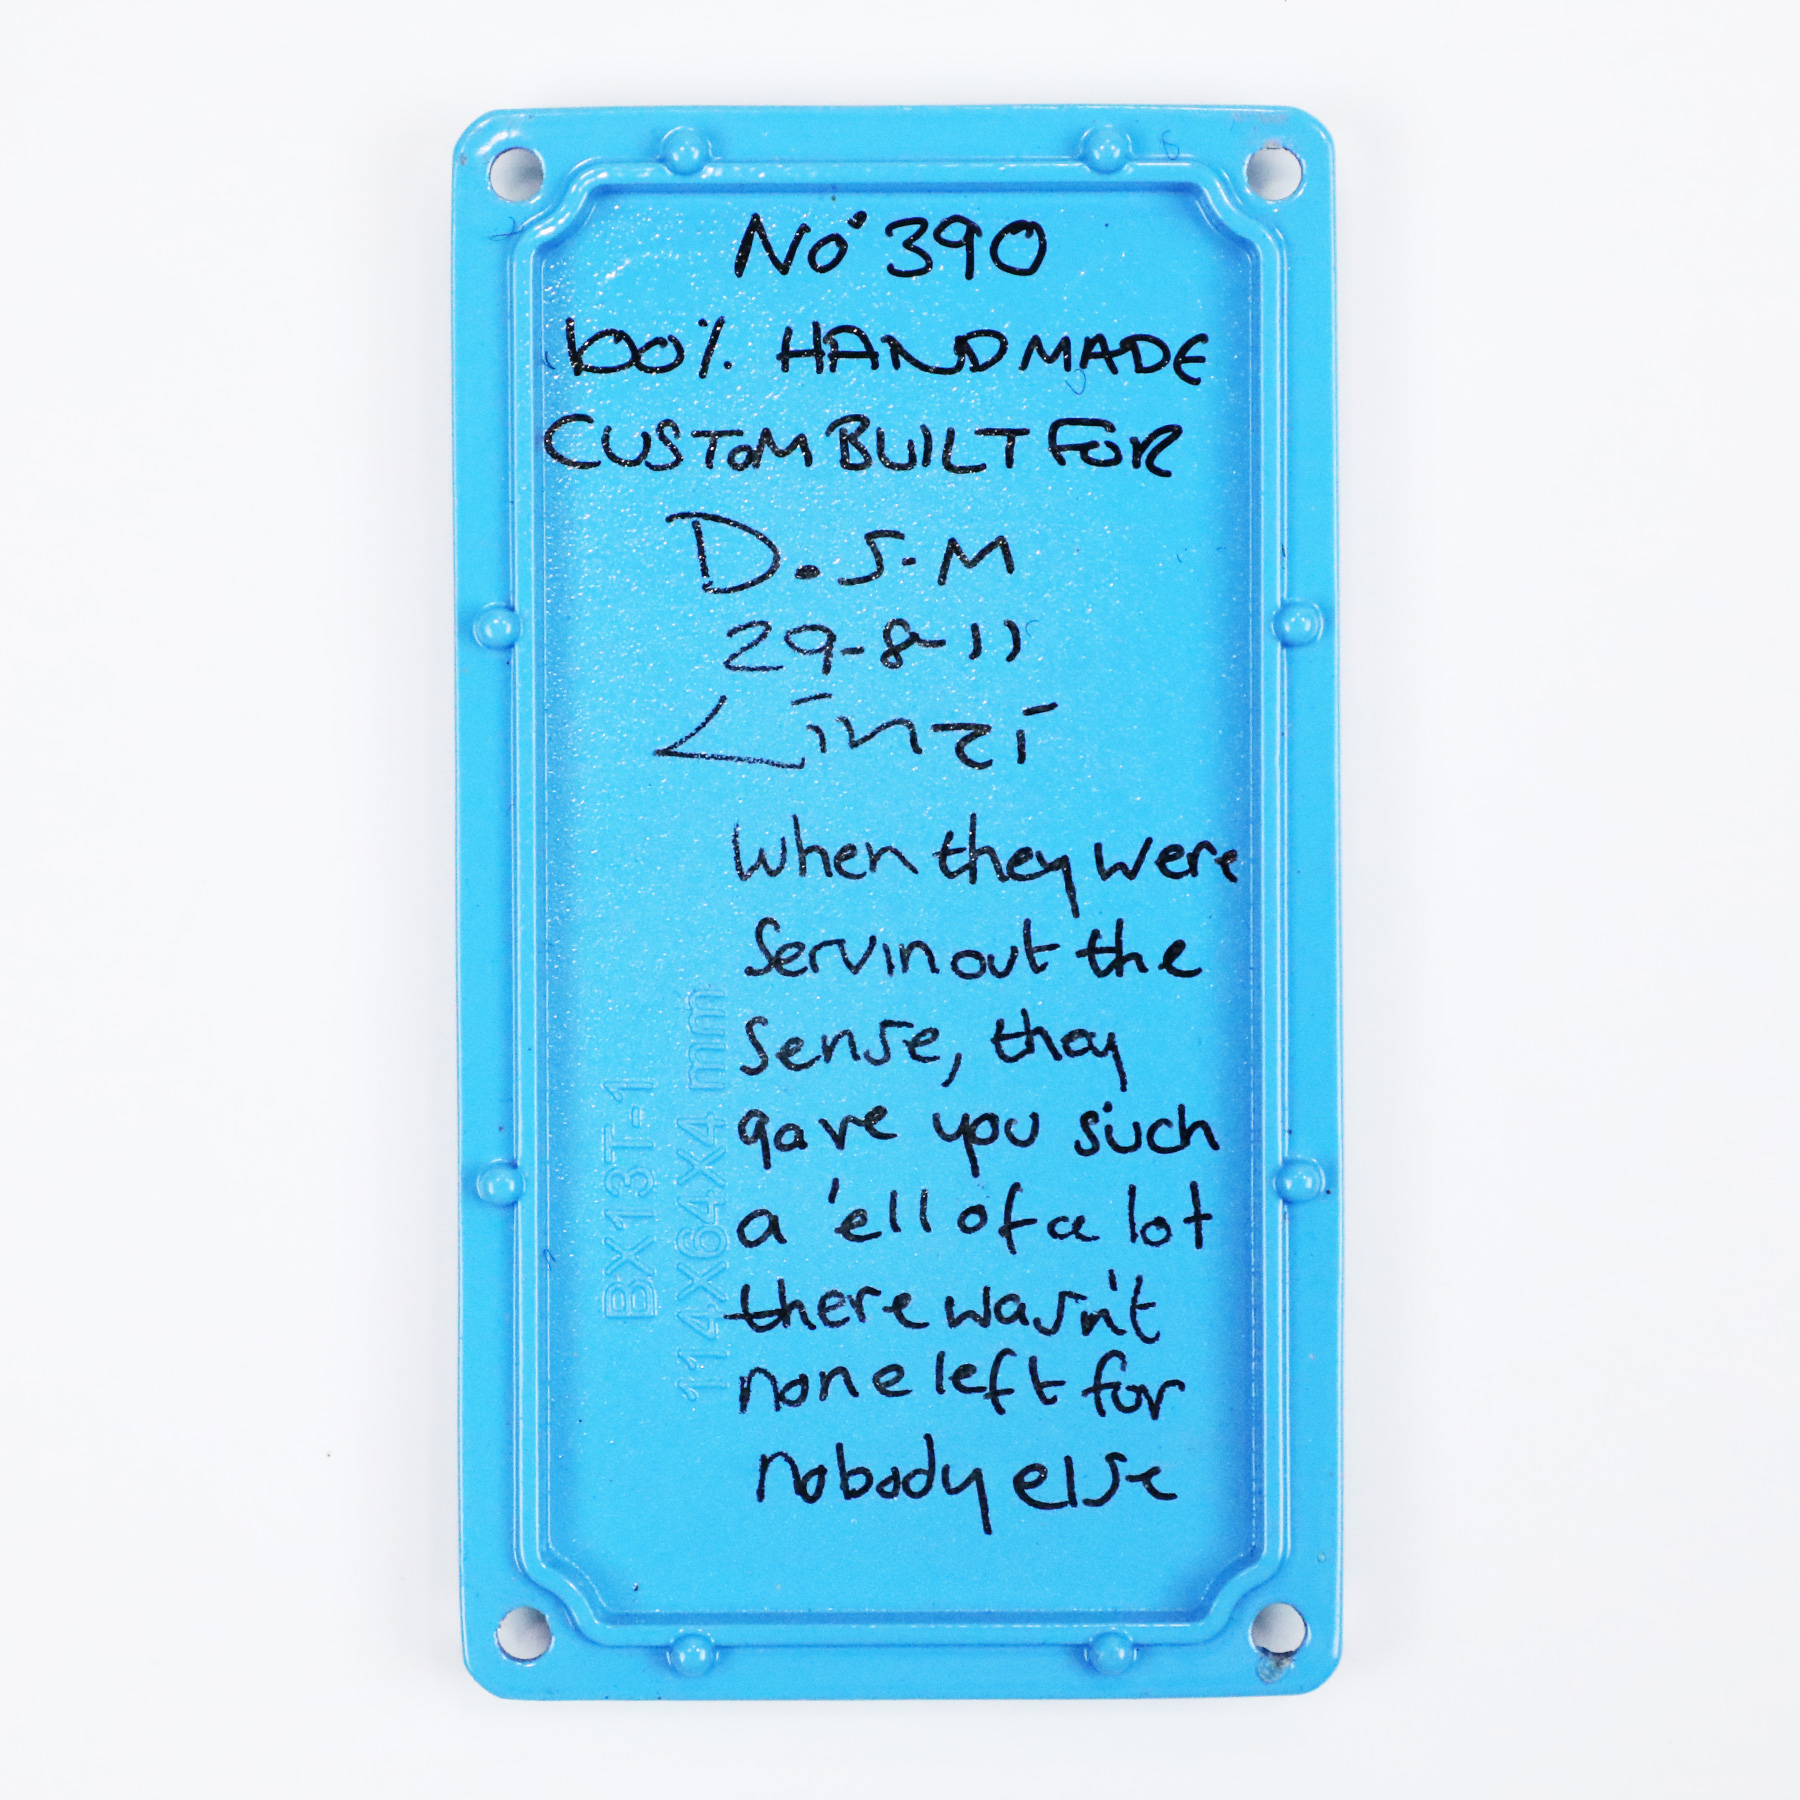 No. 390
100% HANDMADE
CUSTOM BUILT FOR
D.S.M
29-8-11
Linzi
When they were
servin out the
sense, they
gave you such
a 'ell of a lot
there wasn't
none left for
nobody else
BX13T-1
114X64X4 mm